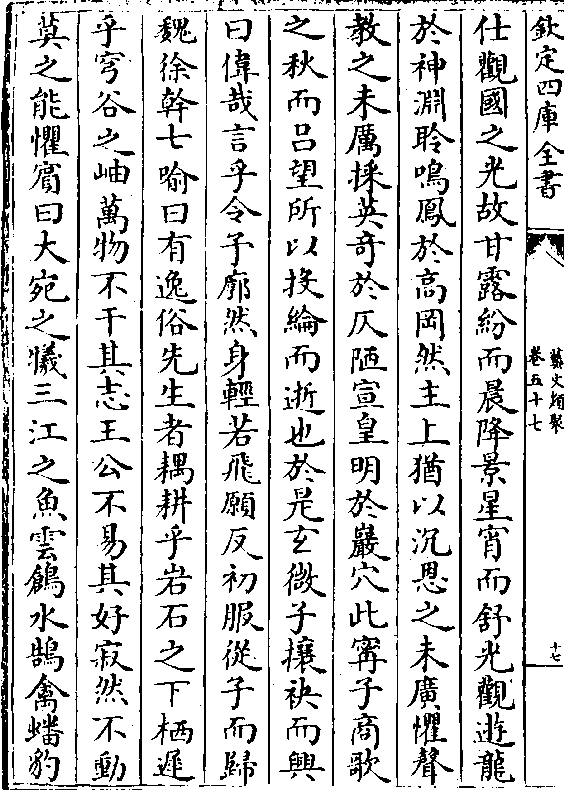 欽定四庫全書
藝文類聚
卷五十七
十七
仕觀國之光故甘露紛而晨降景星宵而舒光觀遊龍
於神淵聆鳴鳳於高岡然主上猶以沉恩之未廣懼聲
教之未厲採英奇於仄陋宣皇明於巖穴此甯子商歌
之秋而呂望所以投綸而逝也於是玄微子攘袂而興
曰偉哉言乎令子廓然身輕若飛願反初服從子而歸
魏徐幹七喻曰有逸俗先生者耦耕乎岩石之下栖遲
乎穹谷之岫萬物不干其志王公不易其好寂然不動
莫之能懼賓曰大宛之犧三江之魚雲鶬水鵠禽蟠豹